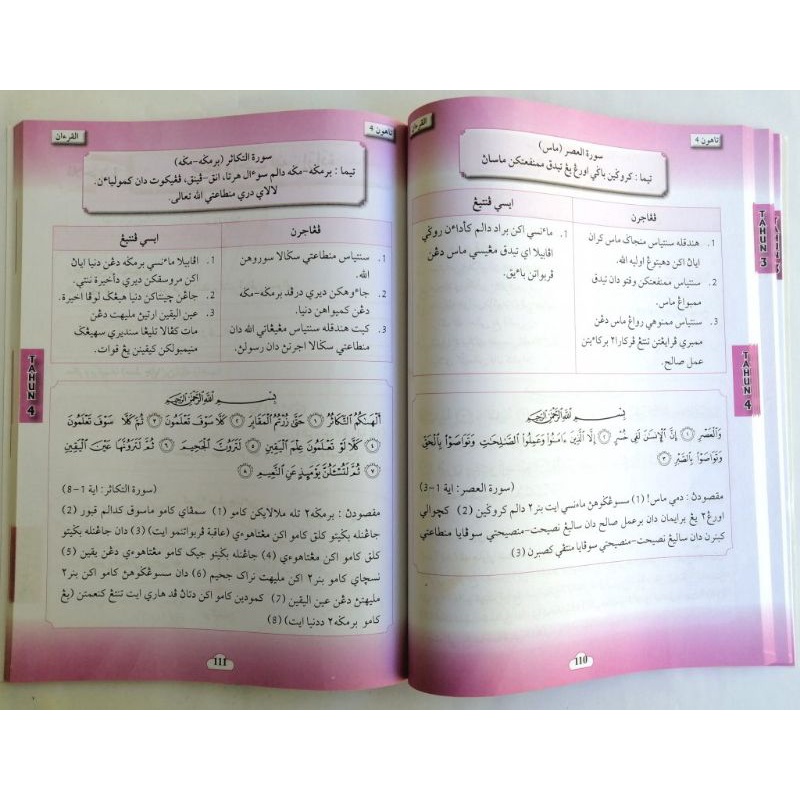 تاهون 4
القرءان
سورة العصر (ماس)
تيما : کروݢين باݢي اورڠ يڠ تيدق ممنفعتکن ماسڽ
ڤڠاجرن
1. هندقله سنتياس منجاݢ ماس کران
اياڽ اکن دهيتوڠ اوليه الله.
2. سنتياس ممنفعتکن وقتو دان تيدق
ممبواڠ ماس.
3. سنتياس ممنوهي رواڠ ماس دڠن
ممبري ڤرهاتين تنتڠ ڤرکارا٢ برکاءيتن
عمل صالح.
ايسي ڤنتيڠ
1. ماءنسي اکن براد دالم کأداءن روݢي
اڤابيلا اي تيدق مڠيسي ماس دڠن
ڤربواتن باءيق.
بسم الله الرحمن الرحيم
وَالْعَصْرِ ١ إِنَّ الْإِنسَانَ لَفِي خُسْرٍ ٢ إِلَّا الَّذِينَ ءَامَنُوا وَعَمِلُوا الصَّالِحَاتِ وَتَوَاصَوْا بِالْحَقِّ
وَتَوَاصَوْا بِالصَّبْرِ ٣
(سورة العصر: اية 1-3)
مقصودڽ : دمي ماس! (1) سسوڠݢوهڽ ماءنسي ايت بنر٢ دالم کروݢين (2) کچوالي
اورڠ٢ يڠ برايمان دان برعمل صالح دان ساليڠ نصيحت-منصيحتي سوڤايا منطاعتي
کبنرن دان ساليڠ نصيحت-منصيحتي سوڤايا منتڤي کصبرن (3)
110
TAHUN 3
TAHUN 4
تاهون 4
القرءان
سورة التکاثر (برمݢه-مݢه)
تيما : برمݢه-مݢه دالم سوءال هرتا، انق-ڤينق، ڤڠيکوت دان کمولياءن.
لالاي دري منطاعتي الله تعالى.
ڤڠاجرن
1. سنتياس منطاعتي سݢالا سوروهن
الله.
2. جاءوهکن ديري درڤد برمݢه-مݢه
دڠن کميواهن دنيا.
3. کيت هندقله سنتياس مڠيڠاتي الله دان
منطاعتي سݢالا اجرنڽ دان رسولڽ.
ايسي ڤنتيڠ
1. اڤابيلا ماءنسي برمݢه دڠن دنيا اياڽ
اکن مروسقکن ديري دأخيرة ننتي.
2. جاڠن چينتاکن دنيا هيڠݢ لوڤا اخيرة.
3. عين اليقين ارتيڽ مليهت دڠن
مات کڤالا تليڠا سنديري سهيڠݢ
منيمبولکن کيقينن يڠ قوات.
بسم الله الرحمن الرحيم
أَلْهَىٰكُمُ التَّكَاثُرُ ١ حَتَّىٰ زُرْتُمُ الْمَقَابِرَ ٢ كَلَّا سَوْفَ تَعْلَمُونَ ٣ ثُمَّ كَلَّا سَوْفَ تَعْلَمُونَ
٤ كَلَّا لَوْ تَعْلَمُونَ عِلْمَ الْيَقِينِ ٥ لَتَرَوُنَّ الْجَحِيمَ ٦ ثُمَّ لَتَرَوُنَّهَا عَيْنَ الْيَقِينِ
٧ ثُمَّ لَتُسْـَٔلُنَّ يَوْمَئِذٍ عَنِ النَّعِيمِ ٨
(سورة التکاثر: اية 1-8)
مقصودڽ : برمݢه٢ تله ملالايکن کامو (1) سمڤاي کامو ماسوق کدالم قبور (2)
جاڠنله بݢيتو کلق کامو اکن مڠتاهوءي (عاقبة ڤربواتنمو ايت) (3) دان جاڠنله بݢيتو
کلق کامو اکن مڠتاهوءي (4) جاڠنله بݢيتو جيک کامو مڠتاهوءي دڠن يقين (5)
نسچاي کامو بنر٢ اکن مليهت نراک جحيم (6) دان سسوڠݢوهڽ کامو اکن بنر٢
مليهتڽ دڠن عين اليقين (7) کمودين کامو اکن دتاڽ ڤد هاري ايت تنتڠ کنعمتن (يڠ
کامو برمݢه٢ ددنيا ايت) (8)
111
TAHUN 4